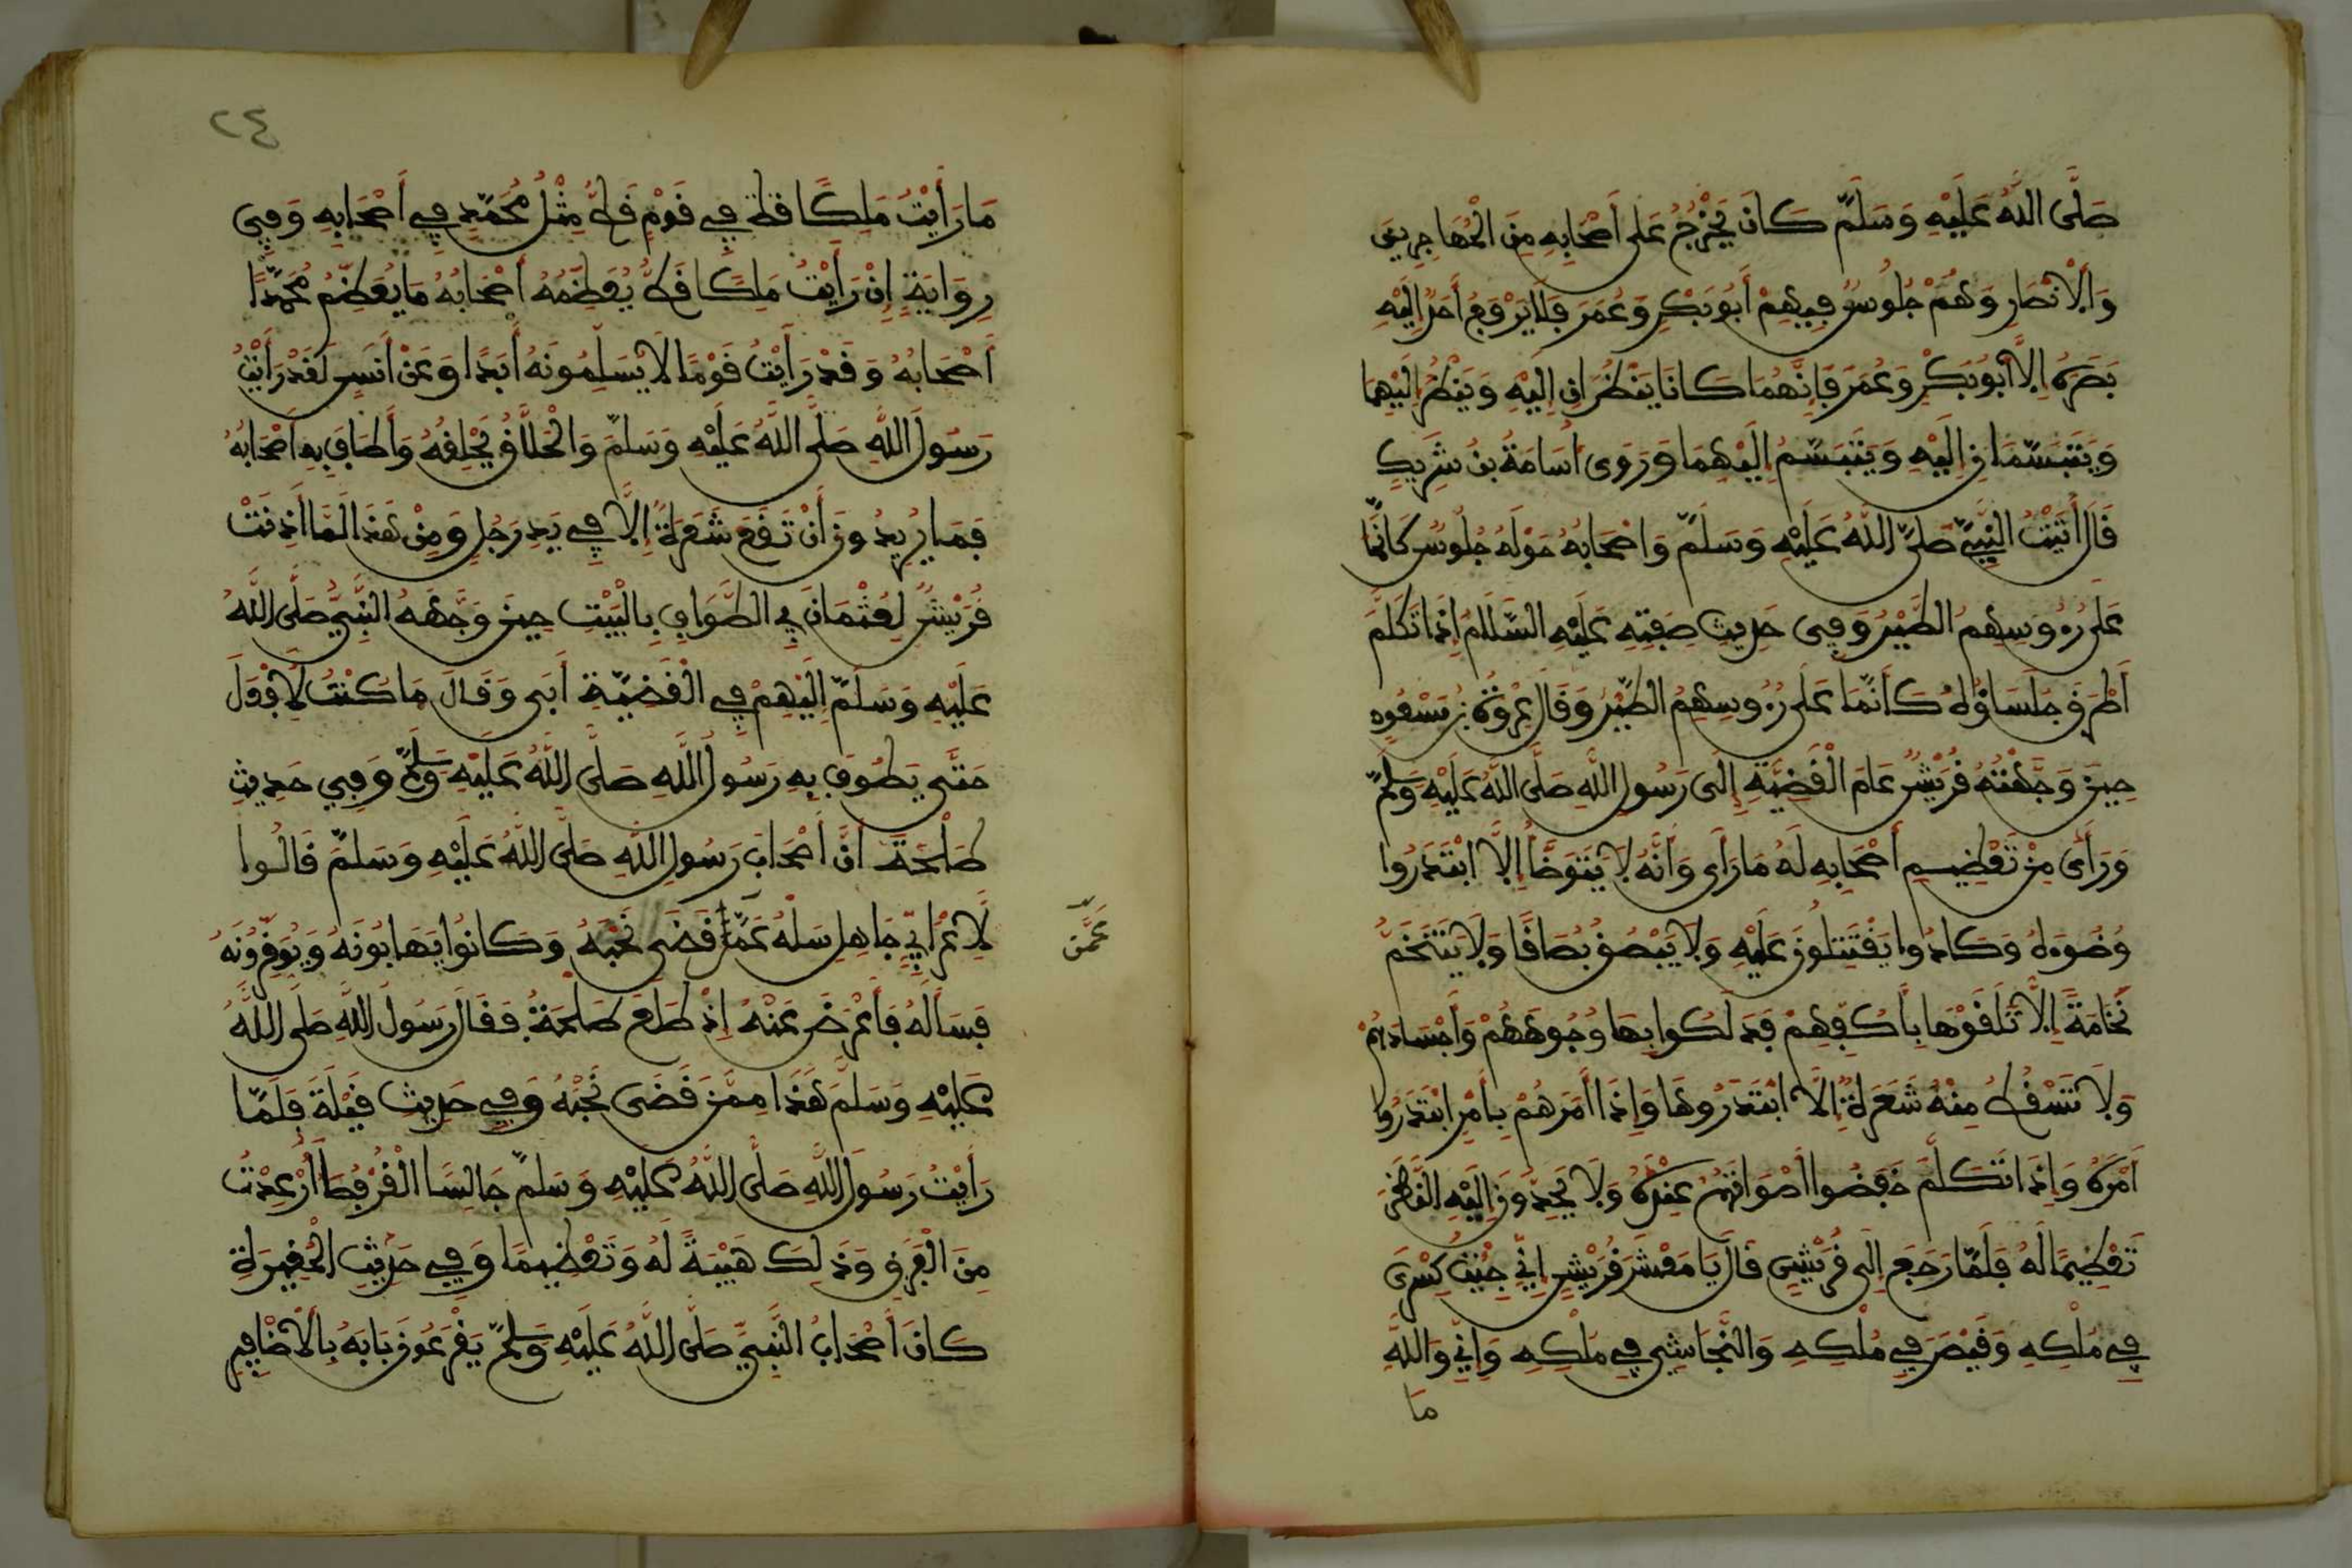 صَلَّى اللَّهُ عَلَيْهِ وَسَلَّمَ كَانَ يَخْرُجُ عَلَى أَصْحَابِهِ مِنَ الْمُهَاجِرِينَ
وَالْأَنْصَارِ وَهُمْ جُلُوسٌ فِيهِمْ أَبُو بَكْرٍ وَعُمَرَ فَلَا يَرْفَعُ أَحَدٌ إِلَيْهِ
بَصَرَهُ إِلَّا أَبُو بَكْرٍ وَعُمَرَ فَإِنَّهُمَا كَانَا يَنْظُرَانِ إِلَيْهِ وَيَنْظُرُ إِلَيْهِمَا
وَيَتَبَسَّمَانِ إِلَيْهِ وَيَتَبَسَّمُ إِلَيْهِمَا وَرَوَى أُسَامَةُ بْنُ شَرِيكٍ
قَالَ أَتَيْتُ النَّبِيَّ صَلَّى اللَّهُ عَلَيْهِ وَسَلَّمَ وَأَصْحَابُهُ حَوْلَهُ جُلُوسٌ كَأَنَّمَا
عَلَى رُءُوسِهِمُ الطَّيْرُ وَفِي حَدِيثِ صِفَتِهِ عَلَيْهِ السَّلَامُ إِذَا تَكَلَّمَ
أَطْرَقَ جُلَسَاؤُهُ كَأَنَّمَا عَلَى رُءُوسِهِمُ الطَّيْرُ وَقَالَ عُرْوَةُ بْنُ مَسْعُودٍ
حِينَ وَجَّهَتْهُ قُرَيْشٌ عَامَ الْقَضِيَّةِ إِلَى رَسُولِ اللَّهِ صَلَّى اللَّهُ عَلَيْهِ وَسَلَّمَ
وَرَأَى مِنْ تَعْظِيمِ أَصْحَابِهِ لَهُ مَا رَأَى وَأَنَّهُ لَا يَتَوَضَّأُ إِلَّا ابْتَدَرُوا
وُضُوءَهُ وَكَادُوا يَقْتَتِلُونَ عَلَيْهِ وَلَا يَبْصُقُ بُصَاقًا وَلَا يَتَنَخَّمُ
نُخَامَةً إِلَّا تَلَقَّوْهَا بِأَكُفِّهِمْ فَدَلَكُوا بِهَا وُجُوهَهُمْ وَأَجْسَادَهُمْ
وَلَا تَسْقُطُ مِنْهُ شَعَرَةٌ إِلَّا ابْتَدَرُوهَا وَإِذَا أَمَرَهُمْ بِأَمْرٍ ابْتَدَرُوا
أَمْرَهُ وَإِذَا تَكَلَّمَ خَفَضُوا أَصْوَاتَهُمْ عِنْدَهُ وَلَا يُحِدُّونَ إِلَيْهِ النَّظَرَ
تَعْظِيمًا لَهُ فَلَمَّا رَجَعَ إِلَى قُرَيْشٍ قَالَ يَا مَعْشَرَ قُرَيْشٍ إِنِّي جِئْتُ كِسْرَى
فِي مُلْكِهِ وَقَيْصَرَ فِي مُلْكِهِ وَالنَّجَاشِي فِي مُلْكِهِ وَإِنِّي وَاللَّهِ
مَا
٢٤
مَا رَأَيْتُ مَلِكًا قَطُّ فِي قَوْمٍ قَطُّ مِثْلُ مُحَمَّدٍ فِي أَصْحَابِهِ وَفِي
رِوَايَةٍ إِنْ رَأَيْتُ مَلِكًا قَطُّ يُعَظِّمُهُ أَصْحَابُهُ مَا يُعَظِّمُ مُحَمَّدًا
أَصْحَابُهُ وَقَدْ رَأَيْتُ قَوْمًا لَا يُسَلِّمُونَهُ أَبَدًا وَعَنْ أَنَسٍ لَقَدْ رَأَيْتُ
رَسُولَ اللَّهِ صَلَّى اللَّهُ عَلَيْهِ وَسَلَّمَ وَالْحَلَّاقُ يَحْلِقُهُ وَأَطَافَ بِهِ أَصْحَابُهُ
فَمَا يُرِيدُونَ أَنْ تَقَعَ شَعَرَةٌ إِلَّا فِي يَدِ رَجُلٍ وَمِنْ هَذَا لَمَّا أَذِنَتْ
قُرَيْشٌ لِعُثْمَانَ فِي الطَّوَافِ بِالْبَيْتِ حِينَ وَجَّهَهُ النَّبِيُّ صَلَّى اللَّهُ
عَلَيْهِ وَسَلَّمَ إِلَيْهِمْ فِي الْقَضِيَّةِ أَبَى وَقَالَ مَا كُنْتُ لِأَفْعَلَ
حَتَّى يَطُوفَ بِهِ رَسُولُ اللَّهِ صَلَّى اللَّهُ عَلَيْهِ وَسَلَّمَ وَفِي حَدِيثِ
طَلْحَةَ أَنَّ أَصْحَابَ رَسُولِ اللَّهِ صَلَّى اللَّهُ عَلَيْهِ وَسَلَّمَ قَالُوا
لِأَعْرَابِيٍّ جَاهِلٍ سَلْهُ عَمَّا قَضَى نَحْبَهُ وَكَانُوا يَهَابُونَهُ وَيُوَقِّرُونَهُ
عَمَّن
فَسَأَلَهُ فَأَعْرَضَ عَنْهُ إِذْ طَلَعَ طَلْحَةُ فَقَالَ رَسُولُ اللَّهِ صَلَّى اللَّهُ
عَلَيْهِ وَسَلَّمَ هَذَا مِمَّنْ قَضَى نَحْبَهُ وَفِي حَدِيثِ قَيْلَةَ فَلَمَّا
رَأَيْتُ رَسُولَ اللَّهِ صَلَّى اللَّهُ عَلَيْهِ وَسَلَّمَ جَالِسًا الْقُرْفُصَا أُرْعِدْتُ
مِنَ الْفَرَقِ وَذَلِكَ هَيْبَةً لَهُ وَتَعْظِيمًا وَفِي حَدِيثِ الْمُغِيرَةِ
كَانَ أَصْحَابُ النَّبِيِّ صَلَّى اللَّهُ عَلَيْهِ وَسَلَّمَ يَقْرَعُونَ بَابَهُ بِالْأَظَافِيرِ